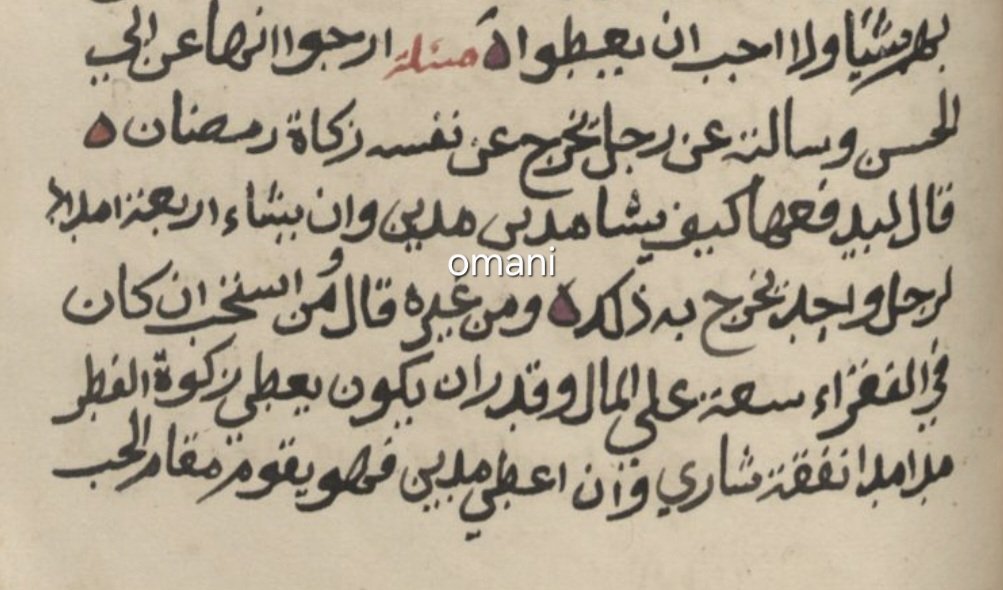 بهم شيئا ولا احب ان يعطوا ه مسئلة ارجوا انها عن ابي
الحسن وسالته عن رجل يخرج عن نفسه زكاة رمضان ه
قال ليدفعها كيف يشا مدين مدين وان يشاء اربعة امداد
لرجل واحد يخرج به ذلك ه ومن غيره قال من استحب ان كان
في الفقراء سعة على المال وقدر ان يكون يعطي زكوة الفطر
مدا مدا نفقة شاري وان اعطى مدين فهو يقوم مقام الحب
omani